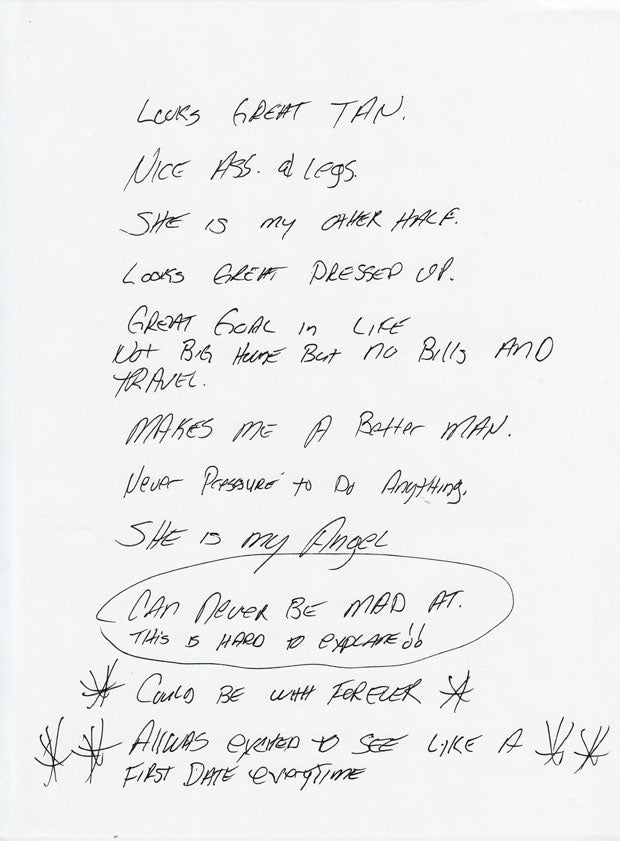 LOOKS GREAT TAN.
NICE ASS. & Legs.
SHE IS my OTHER HALF.
LOOKS GREAT DRESSED UP.
GREAT GOAL in LIFE
Not BIG HOME But no Bills AND
TRAVEL.
MAKES ME A Better MAN.
Never PRESSURE to Do Anything.
SHE IS my Angel
CAN Never BE MAD AT.
THIS IS HARD to EXPLANE!!
COULD BE WITH FOREVER
AllWAS excited to SEE LIKE A
FIRST DATE everyTIME